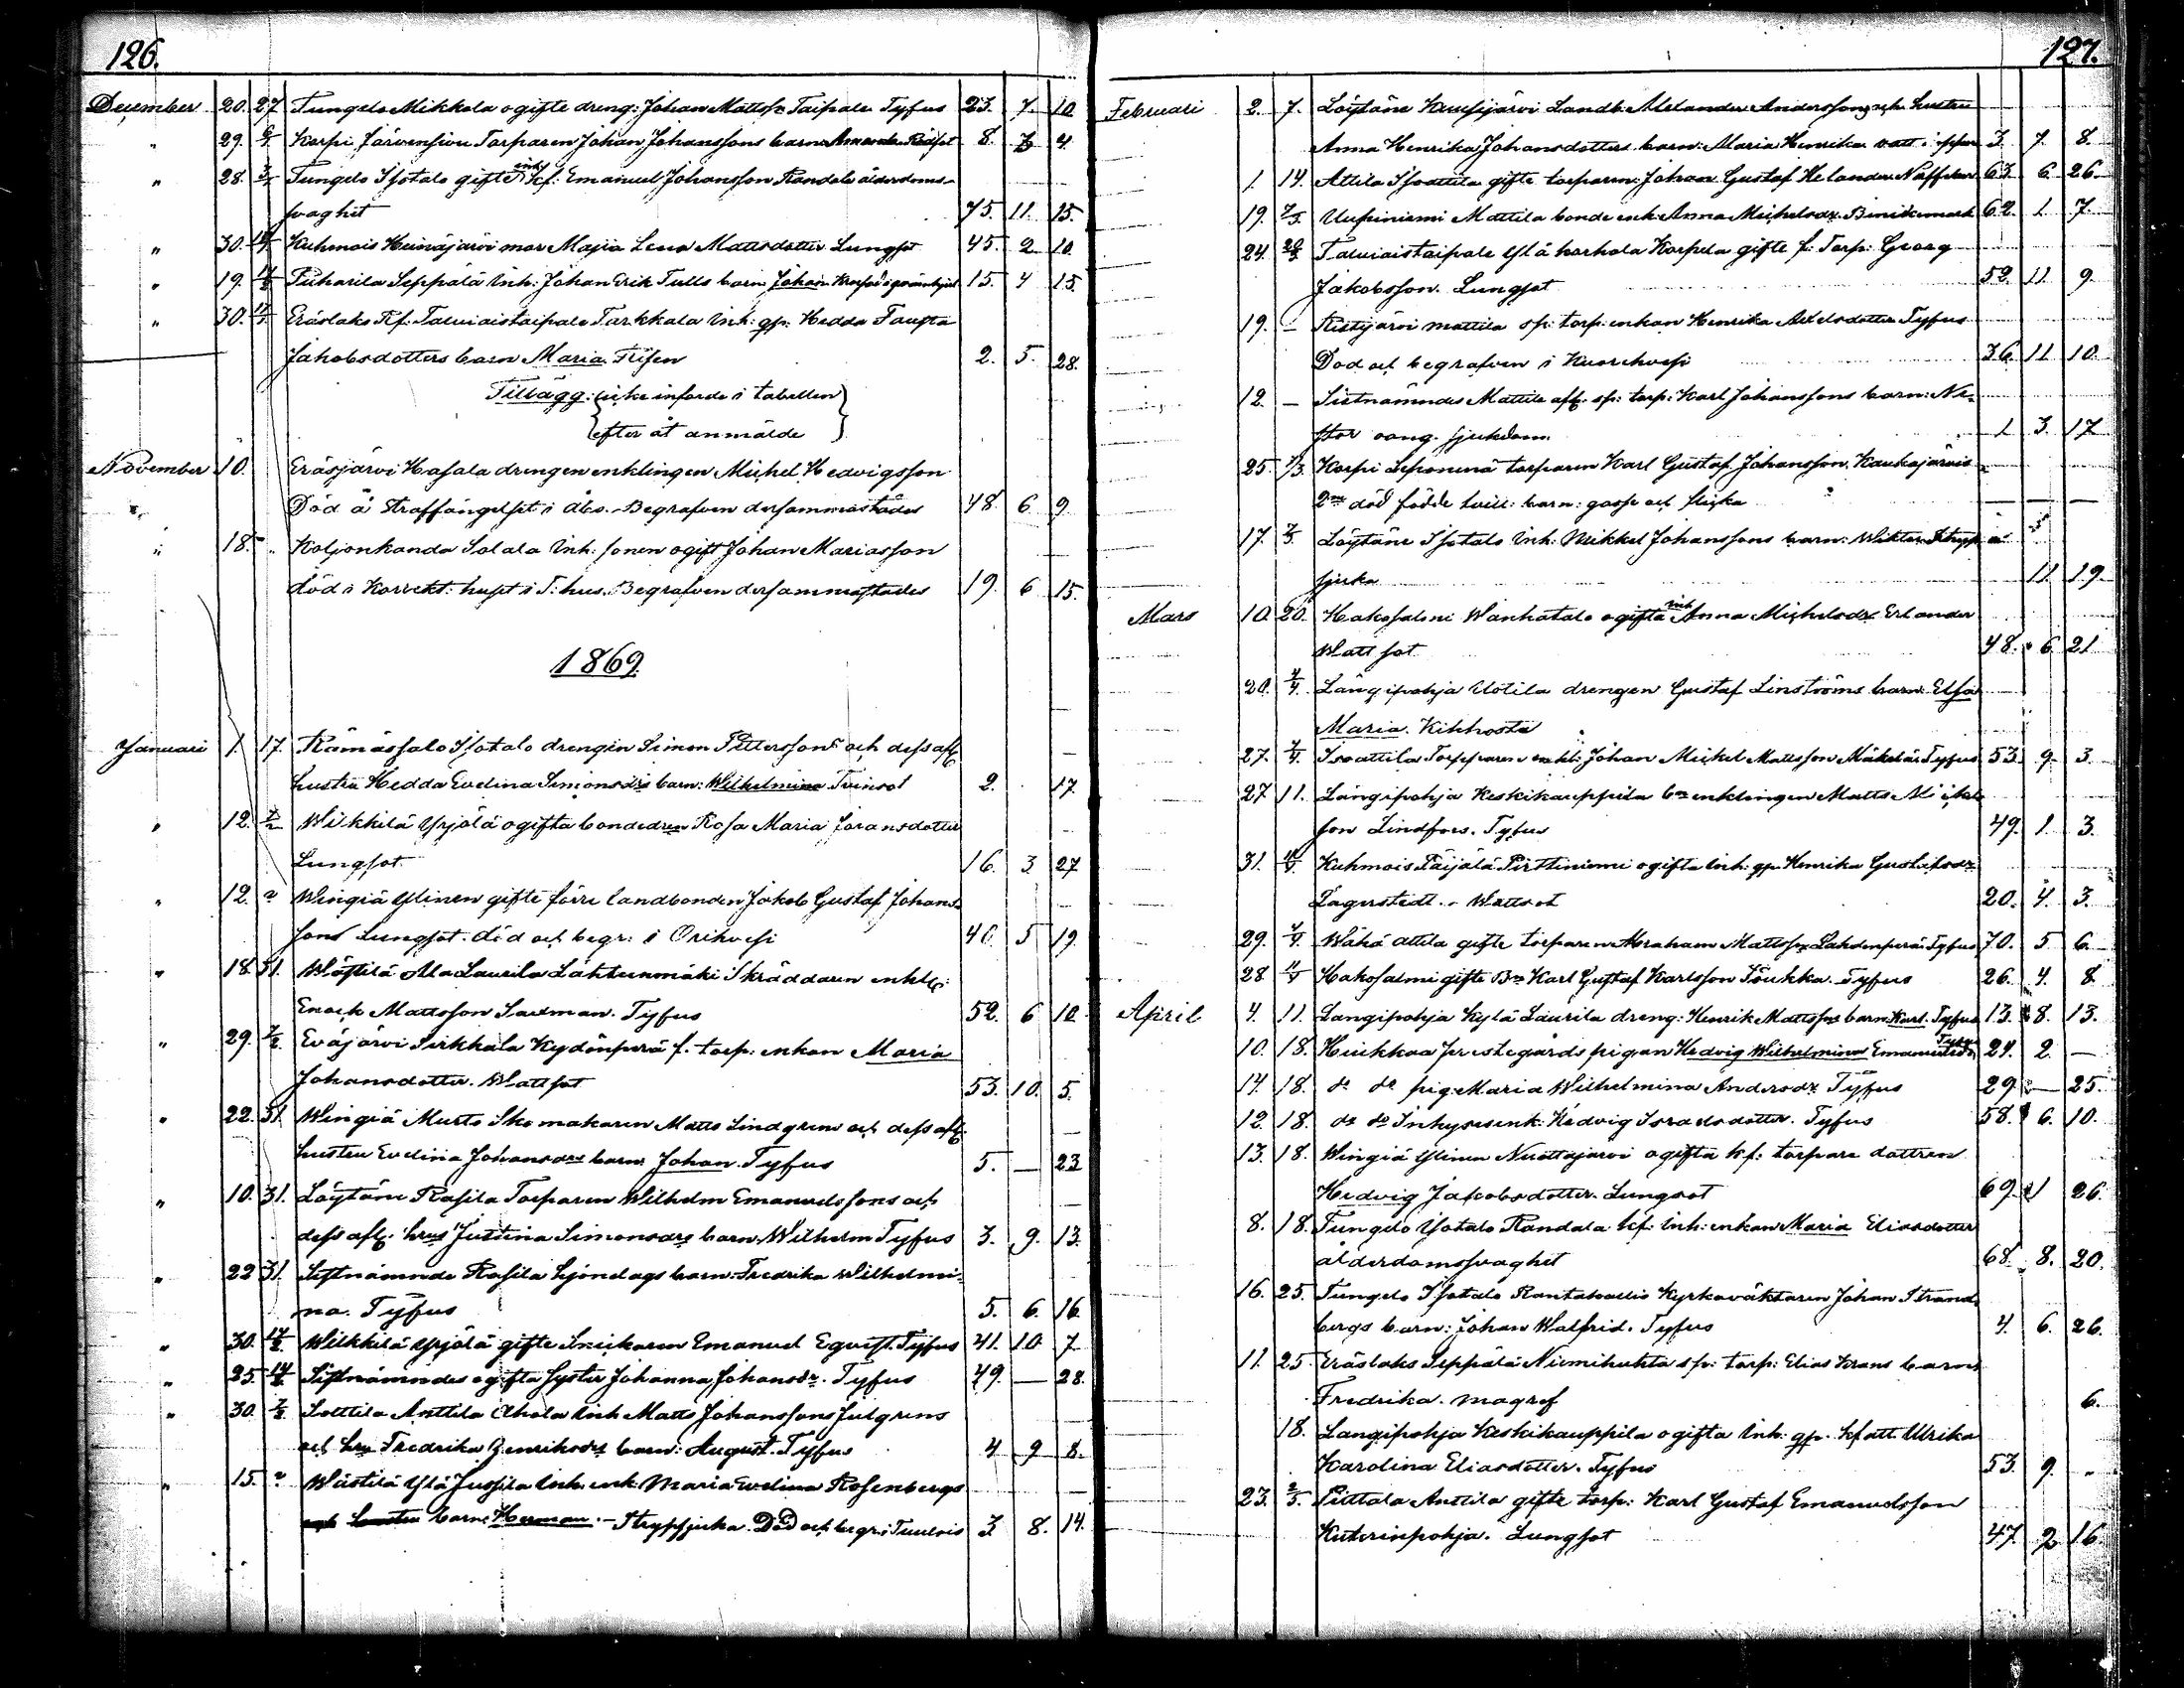 126.
December 20. 27 Tungelo Mikkola ogifte dreng: Johan Mattss. Taipale Tyfus 23. 7. 10
" 29. 6/1 Korpi Järvensivu Torparen Johan Johanssons barn Amanda Rödsot 8. 3 4.
" 28. 3/1 Tungelo Isotalo gifte inh. kf: Emanuel Johansson Randala ålderdoms-
svaghet 75. 11. 15.
" 30. Kuhmois Heinäjärvi mor Maja Lena Mattsdotter Lungsot 45. 2 10
" 19. Puharila Seppälä Inh: Johan Erik Tulls barn Johan 15. 4 15.
" 30. Eräslaks Kf: Talviaistaipale Tarkkala Inh: gp: Hedda Fausta
Jakobsdotters barn Maria Frisen 2. 5. 28.
Tillägg: icke införde i tabellen
efter åt anmälde
November 10. Eräsjärvi Hasala drengen enklingen Michel Hedvigsson
Död å Straffängelset i Åbo. Begrafven dersammastädes 48. 6 9
" 18. " Koljonkanda Salala Inh: sonen ogift Johan Mariasson
död i Korrekt: huset i T: hus. Begrafven dersammastädes 19. 6 15.
1869.
Januari 1. 17. Rämässalo Isotalo drengen Simon Pettersson och dess afl
hustru Hedda Evelina Simonsdrs barn: Wilhelmina Tvinsot 2. 17.
" 12. 7/2 Wilkkilä Yrjölä ogifta bondedren Rosa Maria Joransdotter
Lungsot 16. 3 27
" 12. " Wingiä Ylinen gifte förre landbonden Jakob Gustaf Johans-
sons Lungsot. död och begr: i Orihvesi 40. 5 19.
" 18. 31. Wästilä Ala Laurila Lähteenmäki Skräddaren enkl:
Enoch Mattsson Saxman. Tyfus 52. 6 10
" 29. 7/2. Eväjärvi Sirkkala Kydönperä f. torp: enkan Maria
Johansdotter. Wattsot 53. 10. 5.
" 22. 31. Wingiä Murto Skomakaren Matts Lindgrens och dess afl.
hustru Evelina Johansdrs barn Johan. Tyfus 5. — 23
" 10. 31. Löytäne Rasila Torparen Wilhelm Emanuelssons och
dess afl. hrus Justina Simonsdrs barn Wilhelm Tyfus 3. 9. 13.
" 22 31. Sistnämnde Rasila barn Fredrika Wilhelmi-
na. Tyfus 5. 6. 16
" 30. 14/2 Wilkkilä Yrjölä gifte Snickaren Emanuel Eqvist. Tyfus 41. 10 7
" 25. 14/2 Sistnämndes ogifta syster Johanna Johansdr. Tyfus 49. — 28.
" 30. 7/2. Solttila Anttila Ahola Inh Matts Johanssons Julgrens
och hru Fredrika Henriksdrs barn: August. Tyfus 4 9 8.
" 15. " Wästilä Ylä Jussila Inh. enk. Maria Evelina Rosenbergs
barn Herman. — Strypsjuka. Död och begr: i Tuulois 3. 8. 14.
127.
Februari 2. 7. Löytäne Kuusijärvi Landb: Melander Anderssons och hustru
Anna Henrika Johansdotters barn: Maria Henrika 3. 7. 8.
1. 14. Attila Isoattila gifte torparen Johan Gustaf Helander 63. 6. 26
19. 7/3. Uupiniemi Mattila bonde enk Anna Michelsdr. 62. 1. 7.
24. Talviaistaipale Ylä harhala Korpela gifte f: Torp: Georg
Jakobsson. Lungsot 52. 11. 9.
19. — Ristijärvi Mattila sp: torp: enkan Henrika Axelsdotter Tyfus
Död och begrafven i Kuorehvesi 36. 11 10.
12. — Sistnämndes Mattila afl. sp: torp: Karl Johanssons barn: Ne-
stor oang. sjukdom 1 3. 17
25. 7/3. Korpi Leponemä torparen Karl Gustaf Johansson Kaukajärvis
2ne död födde tvill: barn: gosse och flicka — — —
17. 7/3. Löytäne Isotalo Inh: Mikkel Johanssons barn: Wiktor Stryp
sjuka 11. 19.
Mars 10. 20. Hakosalmi Wanhatalo ogifta inh Anna Michelsdr. Erlander
Wattsot 48. 6 21
20. 4/4. Längipohja Uotila drengen Gustaf Linströms barn: Elsa
Maria. Kikhosta
27. 4/4. Isoattila Torparen enkl: Johan Mickel Mattsson Mäkelä. Tyfus 53. 9. 3.
27 11. Längipohja Keskikauppila bn enklingen Matts Michel
son Lindfors. Tyfus 49. 1. 3.
31. Kuhmois Päijälä Pirttiniemi ogifta Inh: gp. Henrika Gustafsdr
Lagerstedt. Wattsot 20. 4. 3.
29. 4/4. Wähä attila gifte torparen Abraham Mattss. Lahdenperä Tyfus 70. 5 6.
28 Hakosalmi gifte Bn Karl Gustaf Karlsson Töukka. Tyfus 26. 4. 8.
April 4. 11. Längipohja Kylä Laurila dreng: Henrik Mattssons barn Karl. Tyfus 13. 8. 13.
10. 18. Heikkaa prestegårds pigan Hedvig Wilhelmina Emanuelsdr Tyfus 24. 2. —
14. 18. do do pig: Maria Wilhelmina Andersdr. Tyfus 29. — 25.
12. 18. do do Inhyses enk: Hedvig Israelsdotter. Tyfus 58. 6. 10.
13. 18. Wingiä Ylinen Nuottajärvi ogifta kf: torpare dottren
Hedvig Jakobsdotter. Lungsot 69. 1 26.
8. 18. Tungelo Isotalo Randala kf: Inh: enkan Maria Eliasdotter
ålderdomssvaghet 68. 8. 20.
16. 25. Tungelo Isotalo Rantakallio Kyrkoväktaren Johan Strand
bergs barn: Johan Walfrid. Tyfus 4. 6. 26.
11. 25. Eräslaks Seppälä Niemikuhta sp: torp: Elias Krans barn
Fredrika. magref 6.
18. Längipohja Keskikauppila ogifta Inh: gp. Ulrika
Karolina Eliasdotter. Tyfus 53. 9. "
23. 2/5. Pittala Anttila gifte torp: Karl Gustaf Emanuelsson
Kuterinpohja. Lungsot 47. 2 16.